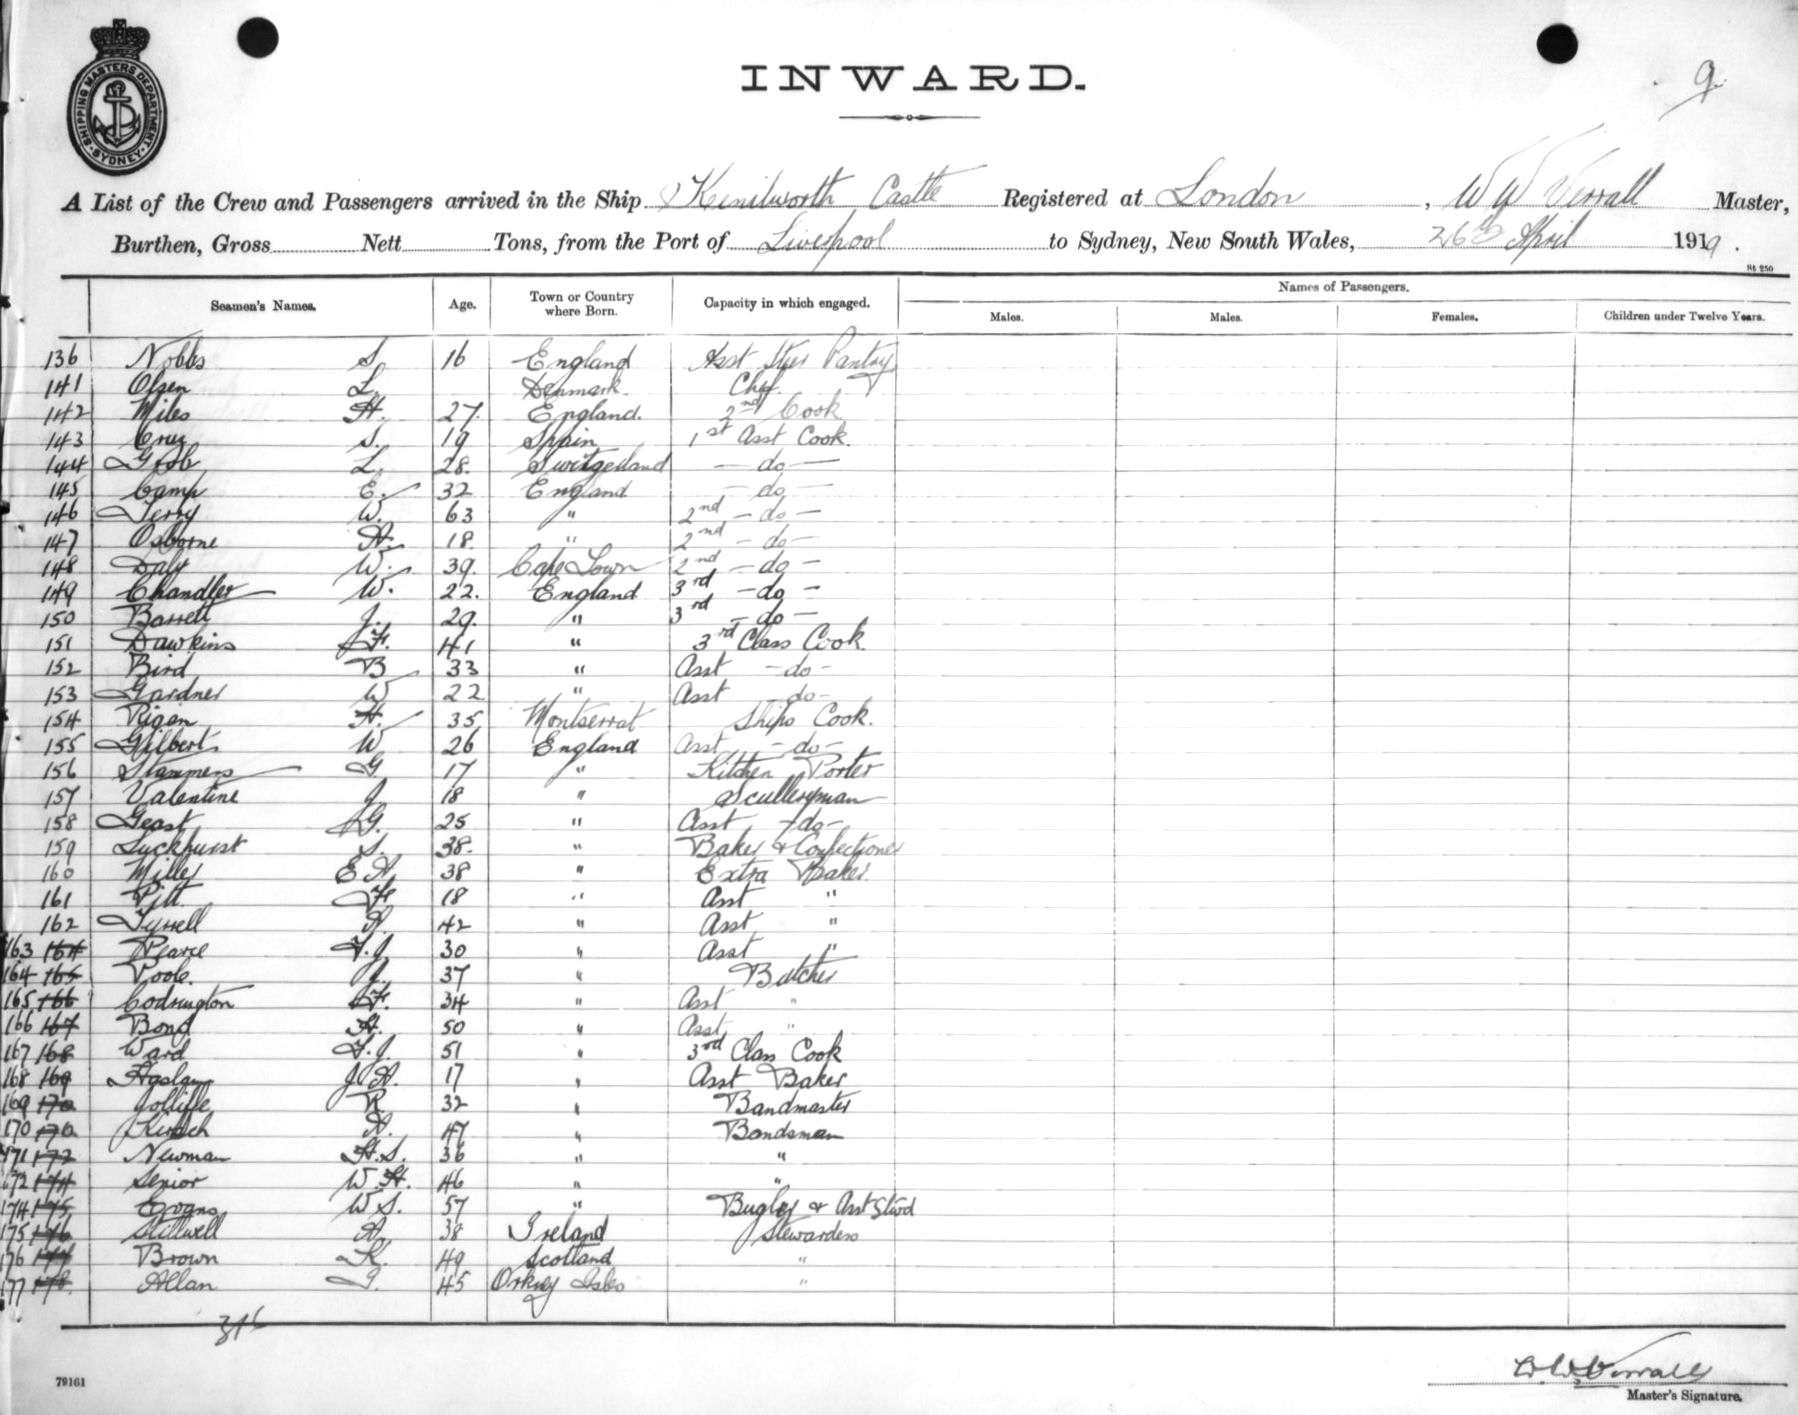 SHIPPING MASTERS DEPARTMENT
SYDNEY
INWARD.
9
A List of the Crew and Passengers arrived in the Ship Kenilworth Castle Registered at London, W W Verrall Master,
Burthen, Gross Nett Tons, from the Port of Liverpool to Sydney, New South Wales, 26th April 1919.
St 250
Seamen's Names. Age. Town or Country where Born. Capacity in which engaged. Names of Passengers.
Males. Males. Females. Children under Twelve Years.
136 Nobbs S. 16 England Asst Stwr Pantry
141 Olsen L. Denmark. Chef.
142 Miles H. 27. England. 2nd Cook
143 Cruz S. 19 Spain 1st Asst Cook.
144 Grob L. 28. Switzerland — do —
145 Camp E. 32 England — do —
146 Terry W. 63 " 2nd — do —
147 Osborne A. 18. " 2nd — do —
148 Daly W. 39. Cape Town 2nd — do —
149 Chandler W. 22. England 3rd — do —
150 Barrett J. 29. " 3rd — do —
151 Dawkins F. 41 " 3rd Class Cook.
152 Bird B 33 " Asst — do —
153 Gardner W 22 " Asst do —
154 H. 35 Montserrat Ships Cook.
155 Gilbert W 26 England Asst — do —
156 Stammers G 17 " Kitchen Porter
157 Valentine J 18 " Sculleryman
158 Geast G. 25 " Asst — do —
159 Luckhurst S. 38. " Baker & Confectioner
160 Miller E A 38 " Extra Baker
161 Pitt F 18 " Asst "
162 Tyrrell A. 42 " Asst "
163 164 Pearce F. J 30 " Asst "
164 165 J. 37 " Butcher
165 166 Codrington F. 34 " Asst "
166 167 Bond A. 50 " Asst "
167 168 Ward F. J. 51 " 3rd Class Cook
168 169 Haslam J A. 17 " Asst Baker
169 170 Jolliffe R 32 " Bandmaster
170 170 Kirsch A. 47 " Bandsman
171 172 Newman H. S. 36 " "
172 174 Senior W. H. 46 " "
174 175 Evans W S. 57 " Bugler & Asst Stwd
175 176 Stillwell A 38 Ireland Stewardess
176 177 Brown K. 49 Scotland "
177 178 Allan I. 45 Orkney Isles "
316
79161
W. W. Verrall
Master's Signature.